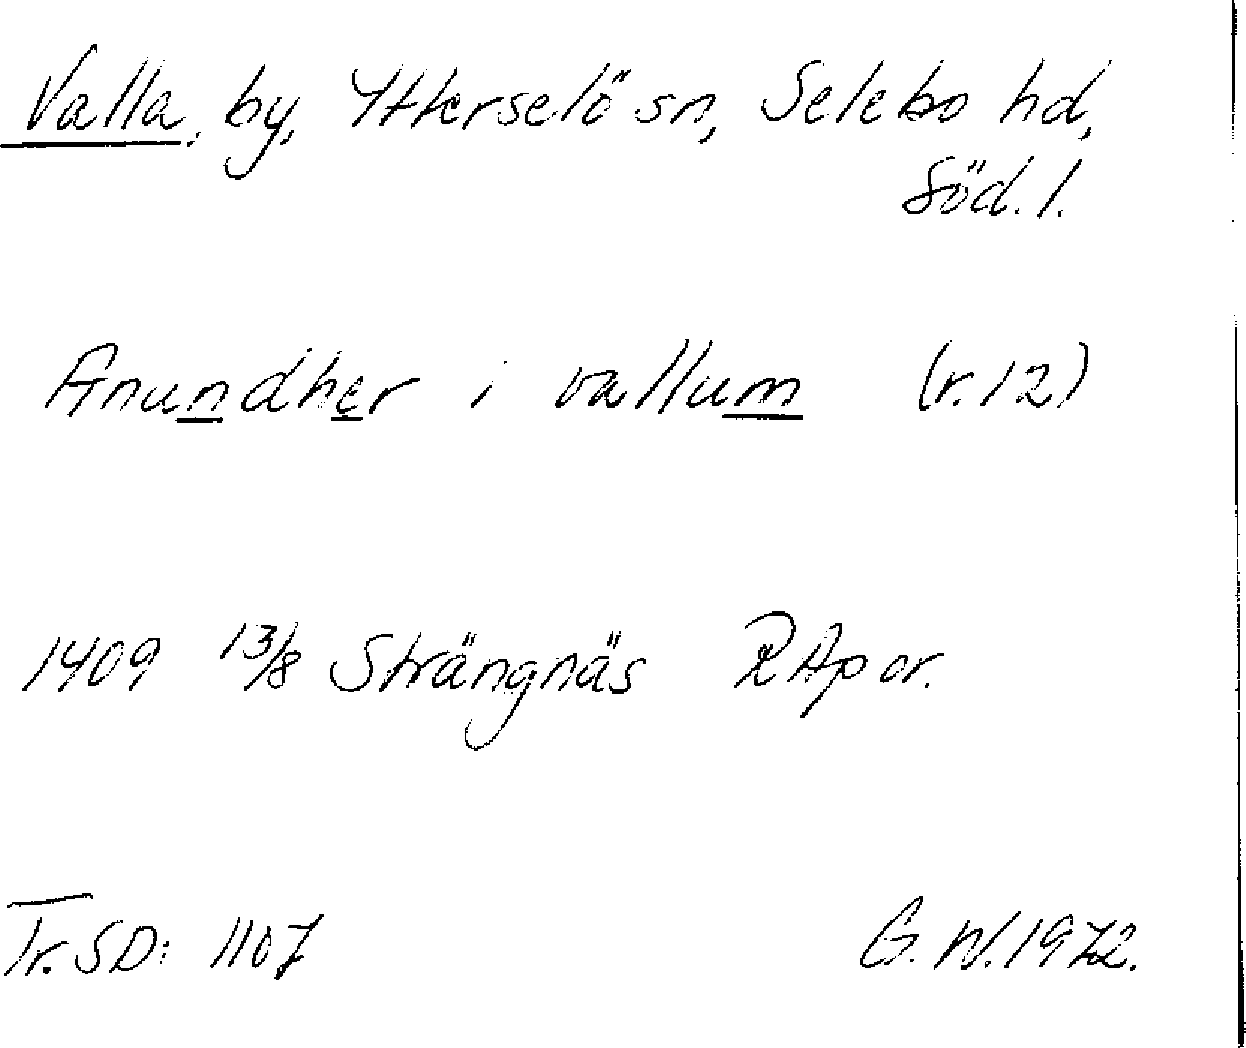 Valla, by, Ytterselö sn, Selebo hd,
Söd. l.
Anundher i vallum (r. 12)
1409 13/8 Strängnäs RAp or.
Tr. SD: 1107
G. W. 1972.